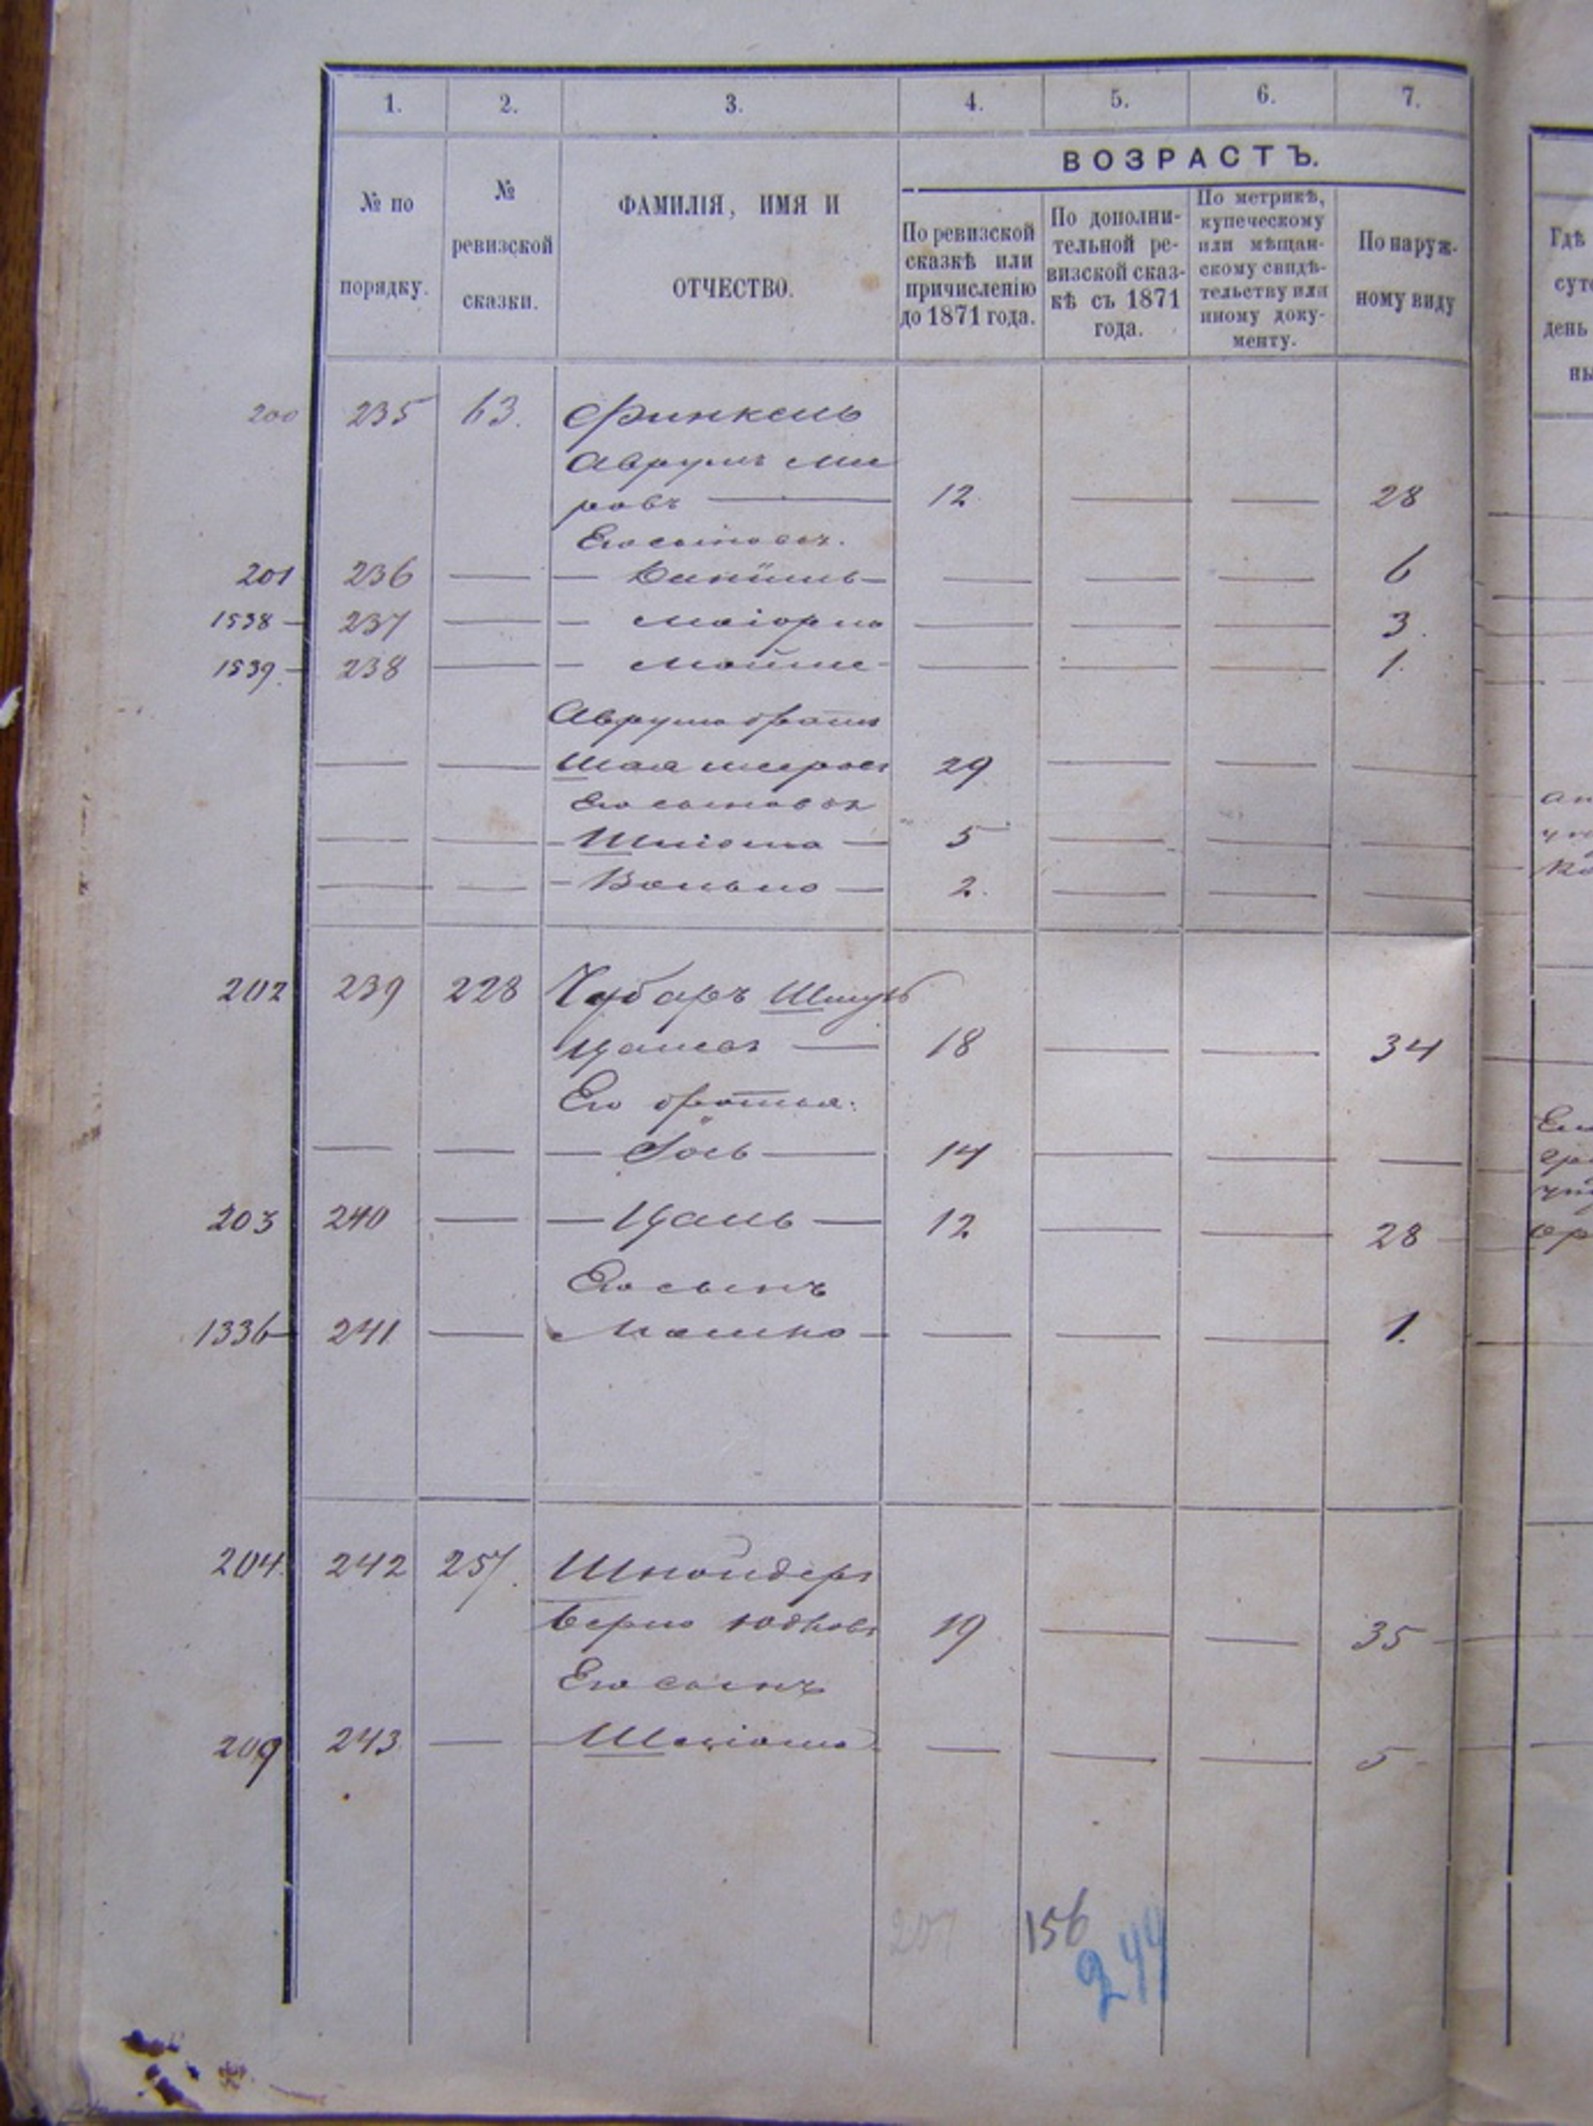 1. 2. 3. 4. 5. 6. 7.
№ по порядку.
№ ревизской сказки.
ФАМИЛІЯ, ИМЯ И ОТЧЕСТВО.
ВОЗРАСТЪ.
По ревизской сказкѣ или причисленію до 1871 года.
По дополнительной ревизской сказкѣ съ 1871 года.
По метрикѣ, купеческому или мѣщанскому свидѣтельству или иному документу.
По наружному виду
Гдѣ
день
200 235 63. Финкель
Аврумъ Ми
ровъ — 12 — — 28
Его сыновья.
201 236 — — — — — 6
1538 — 237 — — Маіорко — — — 3.
1539. — 238 — — Мойше — — — 1.
Аврума братъ
— — Шая Мировъ 29 — — —
Его сыновья
— — — Шліома — 5 — — —
— — — — 2. — — —
202 239 228 Чубаръ Шмуль
— 18 — — 34
Его братья:
— — — Іось — 14 — — —
203 240 — — — 12 — — 28
Его сынъ
1336 — 241 — Мошко — — — — 1.
204. 242 257. Шнойдеръ
Берко Юдковъ 19 — — 35
Его сынъ
209 243 — Шліома — — — 5
207 156
244